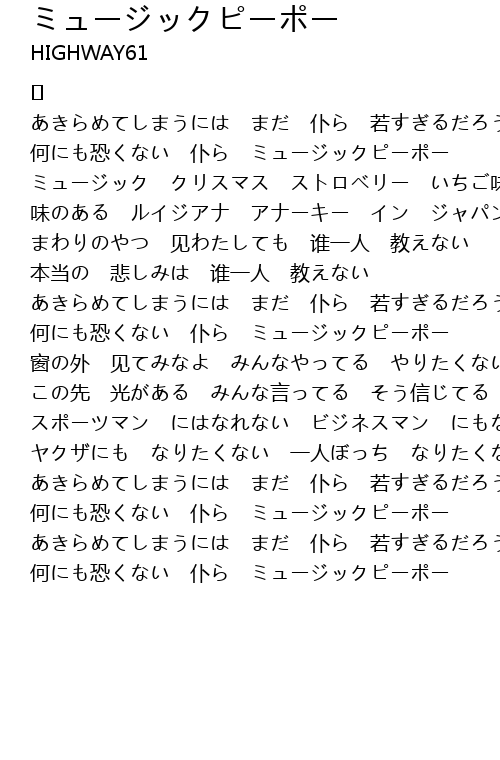 ミュージックピーポー
HIGHWAY61
あきらめてしまうには　まだ　仆ら　若すぎるだろう
何にも恐くない　仆ら　ミュージックピーポー
ミュージック　クリスマス　ストロベリー　いちご味
味のある　ルイジアナ　アナーキー　イン　ジャパン
まわりのやつ　见わたしても　谁一人　教えない
本当の　悲しみは　谁一人　教えない
あきらめてしまうには　まだ　仆ら　若すぎるだろう
何にも恐くない　仆ら　ミュージックピーポー
窗の外　见てみなよ　みんなやってる　やりたくない
この先　光がある　みんな言ってる　そう信じてる
スポーツマン　にはなれない　ビジネスマン　にもな
ヤクザにも　なりたくない　一人ぼっち　なりたくな
あきらめてしまうには　まだ　仆ら　若すぎるだろう
何にも恐くない　仆ら　ミュージックピーポー
あきらめてしまうには　まだ　仆ら　若すぎるだろう
何にも恐くない　仆ら　ミュージックピーポー